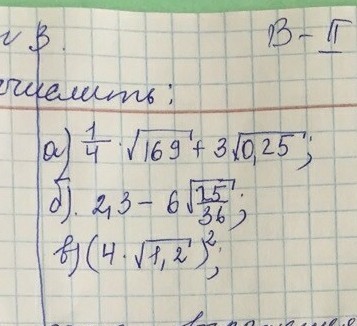 № 3. В-II
ычислить:
а) 1/4 · √169 + 3√0,25;
б). 2,3 - 6√25/36;
в) (4 · √1,2)²;